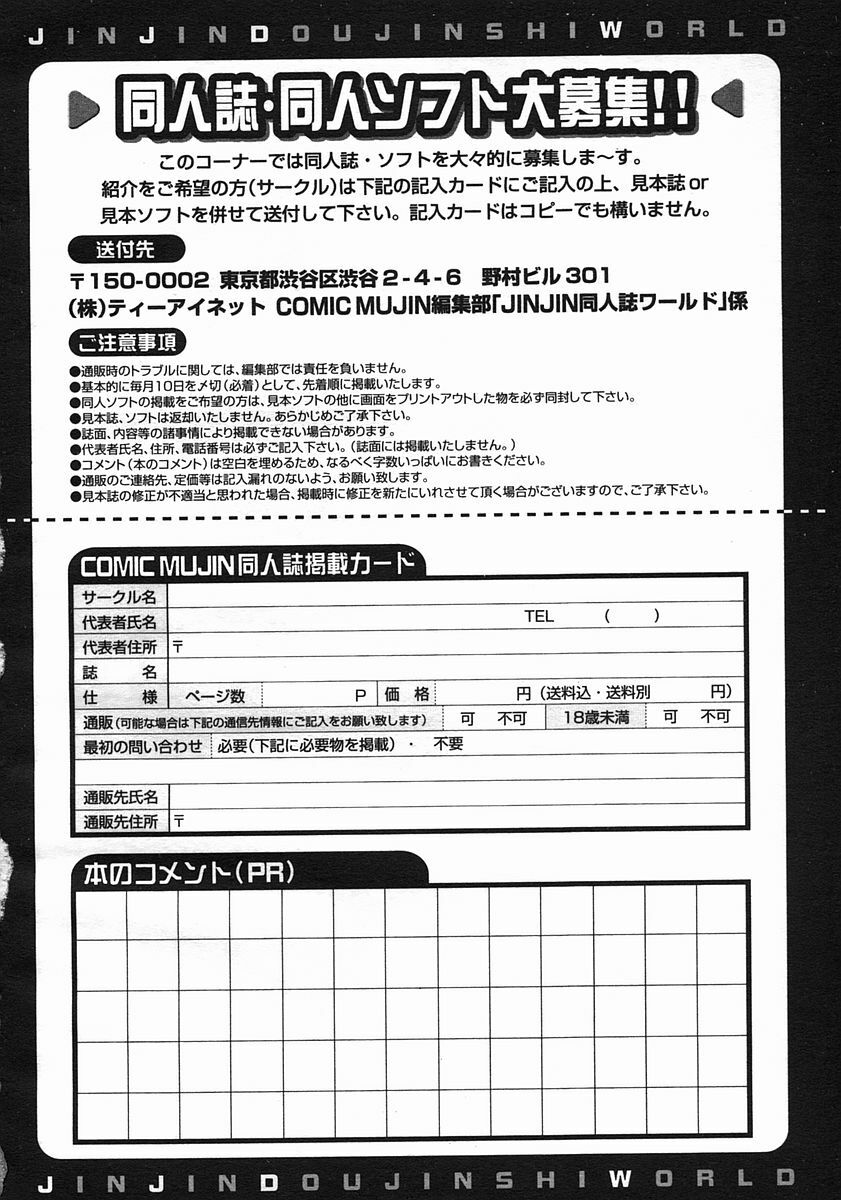 JINJINDOUJINSHIWORLD
同人誌・同人ソフト大募集!!
このコーナーでは同人誌・ソフトを大々的に募集しま〜す。
紹介をご希望の方(サークル)は下記の記入カードにご記入の上、見本誌or
見本ソフトを併せて送付して下さい。記入カードはコピーでも構いません。
送付先
〒150-0002 東京都渋谷区渋谷2-4-6 野村ビル301
(株)ティーアイネット COMIC MUJIN編集部「JINJIN同人誌ワールド」係
ご注意事項
●通販時のトラブルに関しては、編集部では責任を負いません。
●基本的に毎月10日を〆切(必着)として、先着順に掲載いたします。
●同人ソフトの掲載をご希望の方は、見本ソフトの他に画面をプリントアウトした物を必ず同封して下さい。
●見本誌、ソフトは返却いたしません。あらかじめご了承下さい。
●誌面、内容等の諸事情により掲載できない場合があります。
●代表者氏名、住所、電話番号は必ずご記入下さい。(誌面には掲載いたしません。)
●コメント(本のコメント)は空白を埋めるため、なるべく字数いっぱいにお書きください。
●通販のご連絡先、定価等は記入漏れのないよう、お願い致します。
●見本誌の修正が不適当と思われた場合、掲載時に修正を新たにいれさせて頂く場合がございますので、ご了承下さい。
COMIC MUJIN同人誌掲載カード
サークル名
代表者氏名 TEL ( )
代表者住所 〒
誌 名
仕 様 ページ数 P 価 格 円 (送料込・送料別 円)
通販(可能な場合は下記の通信先情報にご記入をお願い致します) 可 不可 18歳未満 可 不可
最初の問い合わせ 必要(下記に必要物を掲載) ・ 不要
通販先氏名
通販先住所 〒
本のコメント(PR)
JINJINDOUJINSHIWORLD